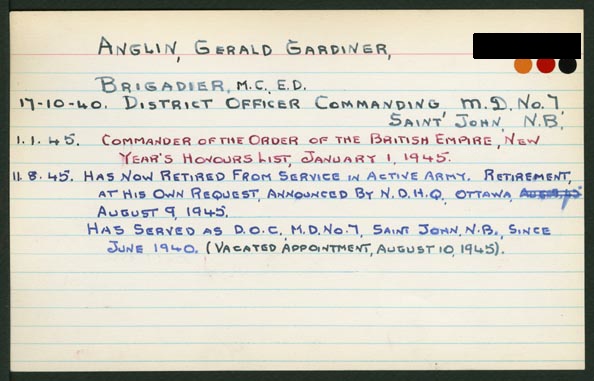 ANGLIN, GERALD GARDINER,
BRIGADIER, M.C., E.D.
17-10-40. DISTRICT OFFICER COMMANDING M.D. No. 7,
SAINT JOHN, N.B.
1.1.45. COMMANDER OF THE ORDER OF THE BRITISH EMPIRE, NEW
YEAR'S HONOURS LIST, JANUARY 1, 1945.
11.8.45. HAS NOW RETIRED FROM SERVICE IN ACTIVE ARMY. RETIREMENT,
AT HIS OWN REQUEST, ANNOUNCED BY N.D.H.Q. OTTAWA,
AUGUST 9, 1945.
HAS SERVED AS D.O.C., M.D. No. 7, SAINT JOHN, N.B., SINCE
JUNE 1940. (VACATED APPOINTMENT, AUGUST 10, 1945).